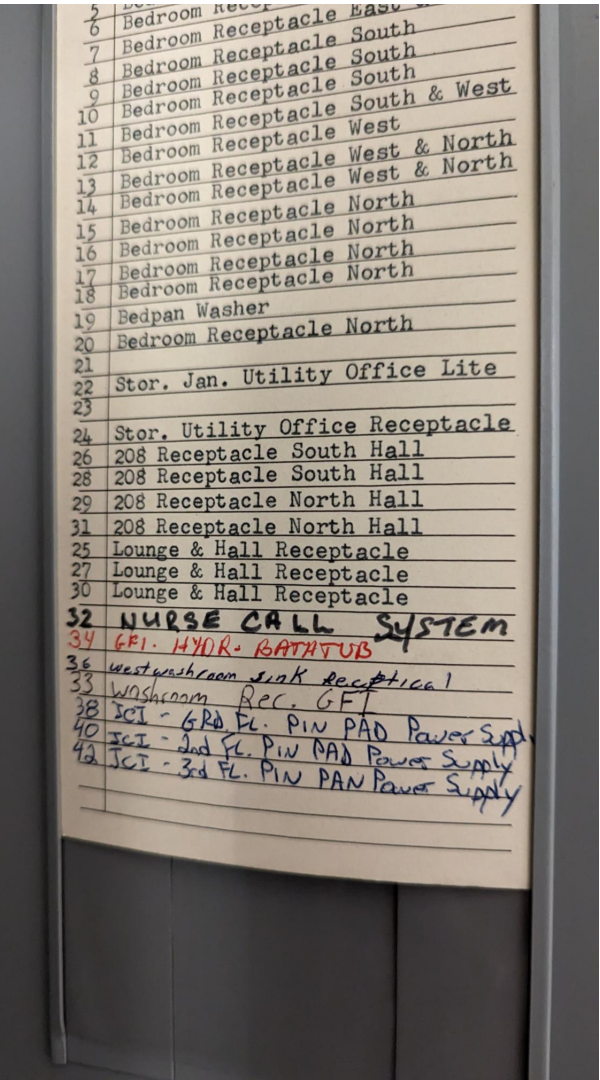 5
6 Bedroom
7 Bedroom Receptacle East
8 Bedroom Receptacle South
9 Bedroom Receptacle South
10 Bedroom Receptacle South
11 Bedroom Receptacle South & West
12 Bedroom Receptacle West
13 Bedroom Receptacle West & North
14 Bedroom Receptacle West & North
15 Bedroom Receptacle North
16 Bedroom Receptacle North
17 Bedroom Receptacle North
18 Bedroom Receptacle North
19 Bedpan Washer
20 Bedroom Receptacle North
21
22 Stor. Jan. Utility Office Lite
23
24 Stor. Utility Office Receptacle
26 208 Receptacle South Hall
28 208 Receptacle South Hall
29 208 Receptacle North Hall
31 208 Receptacle North Hall
25 Lounge & Hall Receptacle
27 Lounge & Hall Receptacle
30 Lounge & Hall Receptacle
32 NURSE CALL SYSTEM
34 GFI. HYDR. BATHTUB
36 westwashroom sink Receptical
33 Washroom Rec. GFI
38 JCI - GRD. FL. PIN PAD Power Supply
40 JCI - 2nd FL. PIN PAD Power Supply
42 JCI - 3rd FL. PIN PAN Power Supply